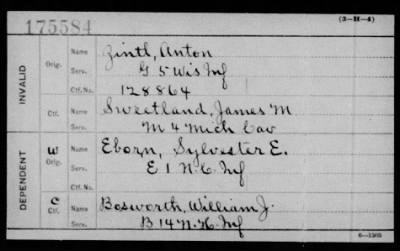 175584
(3-H-4)
INVALID
Orig.
Name Zintl, Anton
Serv. G 5 Wis Inf
Ctf. No. 128864
Ctf.
Name Sweetland, James M.
Serv. M 4 Mich Cav
DEPENDENT
W
Orig.
Name Eborn, Sylvester E.
Serv. E 1 N.C. Inf
Ctf. No.
C
Ctf.
Name Bosworth, William J.
Serv. B 14 N.H. Inf